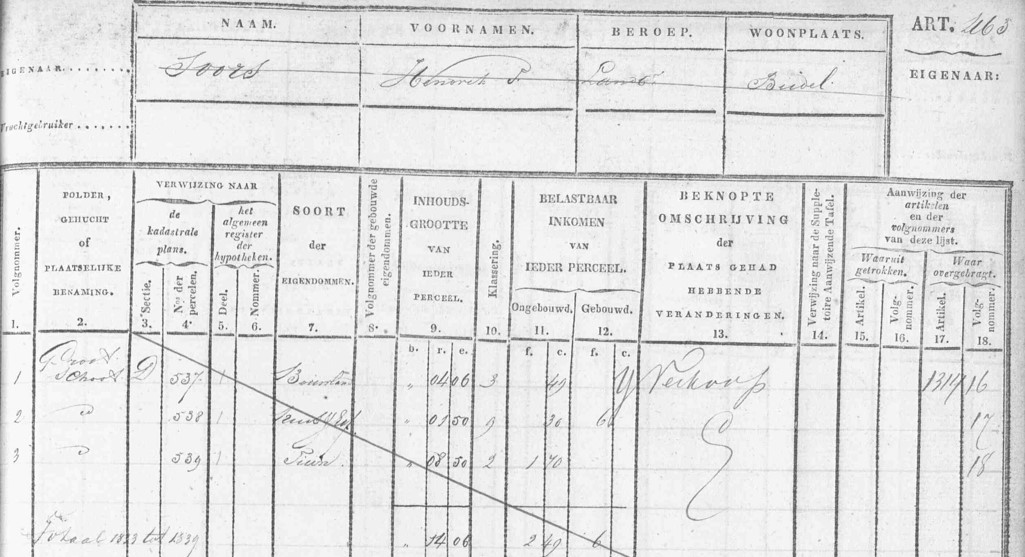 NAAM. VOORNAMEN. BEROEP. WOONPLAATS. ART. 463
EIGENAAR Soors Hendrik P. Landb Budel. EIGENAAR:
Vruchtgebruiker
Volgnommer. POLDER, GEHUCHT of PLAATSELIJKE BENAMING. VERWIJZING NAAR de kadastrale plans. het algemeen register der hypotheken. SOORT der EIGENDOMMEN. Volgnommer der gebouwde eigendommen. INHOUDS-GROOTTE VAN IEDER PERCEEL. Klassering. BELASTBAAR INKOMEN VAN IEDER PERCEEL. BEKNOPTE OMSCHRIJVING der PLAATS GEHAD HEBBENDE VERANDERINGEN. Verwijzing naar de Suppletoire Aanwijzende Tafel. Aanwijzing der artikelen en der volgnommers van deze lijst.
Sectie. Nos der perceelen. Deel. Nommer. Ongebouwd. Gebouwd. Waaruit getrokken. Waar overgebragt.
Artikel. Volg-nommer. Artikel. Volg-nommer.
1. 2. 3. 4. 5. 6. 7. 8. 9. 10. 11. 12. 13. 14. 15. 16. 17. 18.
b. r. e. f. c. f. c.
1 Groot Schoot D 537 1 " 04 06 3 49 Verkoop 1314 16
2 " 538 1 " 01 50 9 30 6 17
3 " 539 1 Tuin. " 08 50 2 1 70 18
Totaal 1833 tot 1839 " 14 06 2 49 6